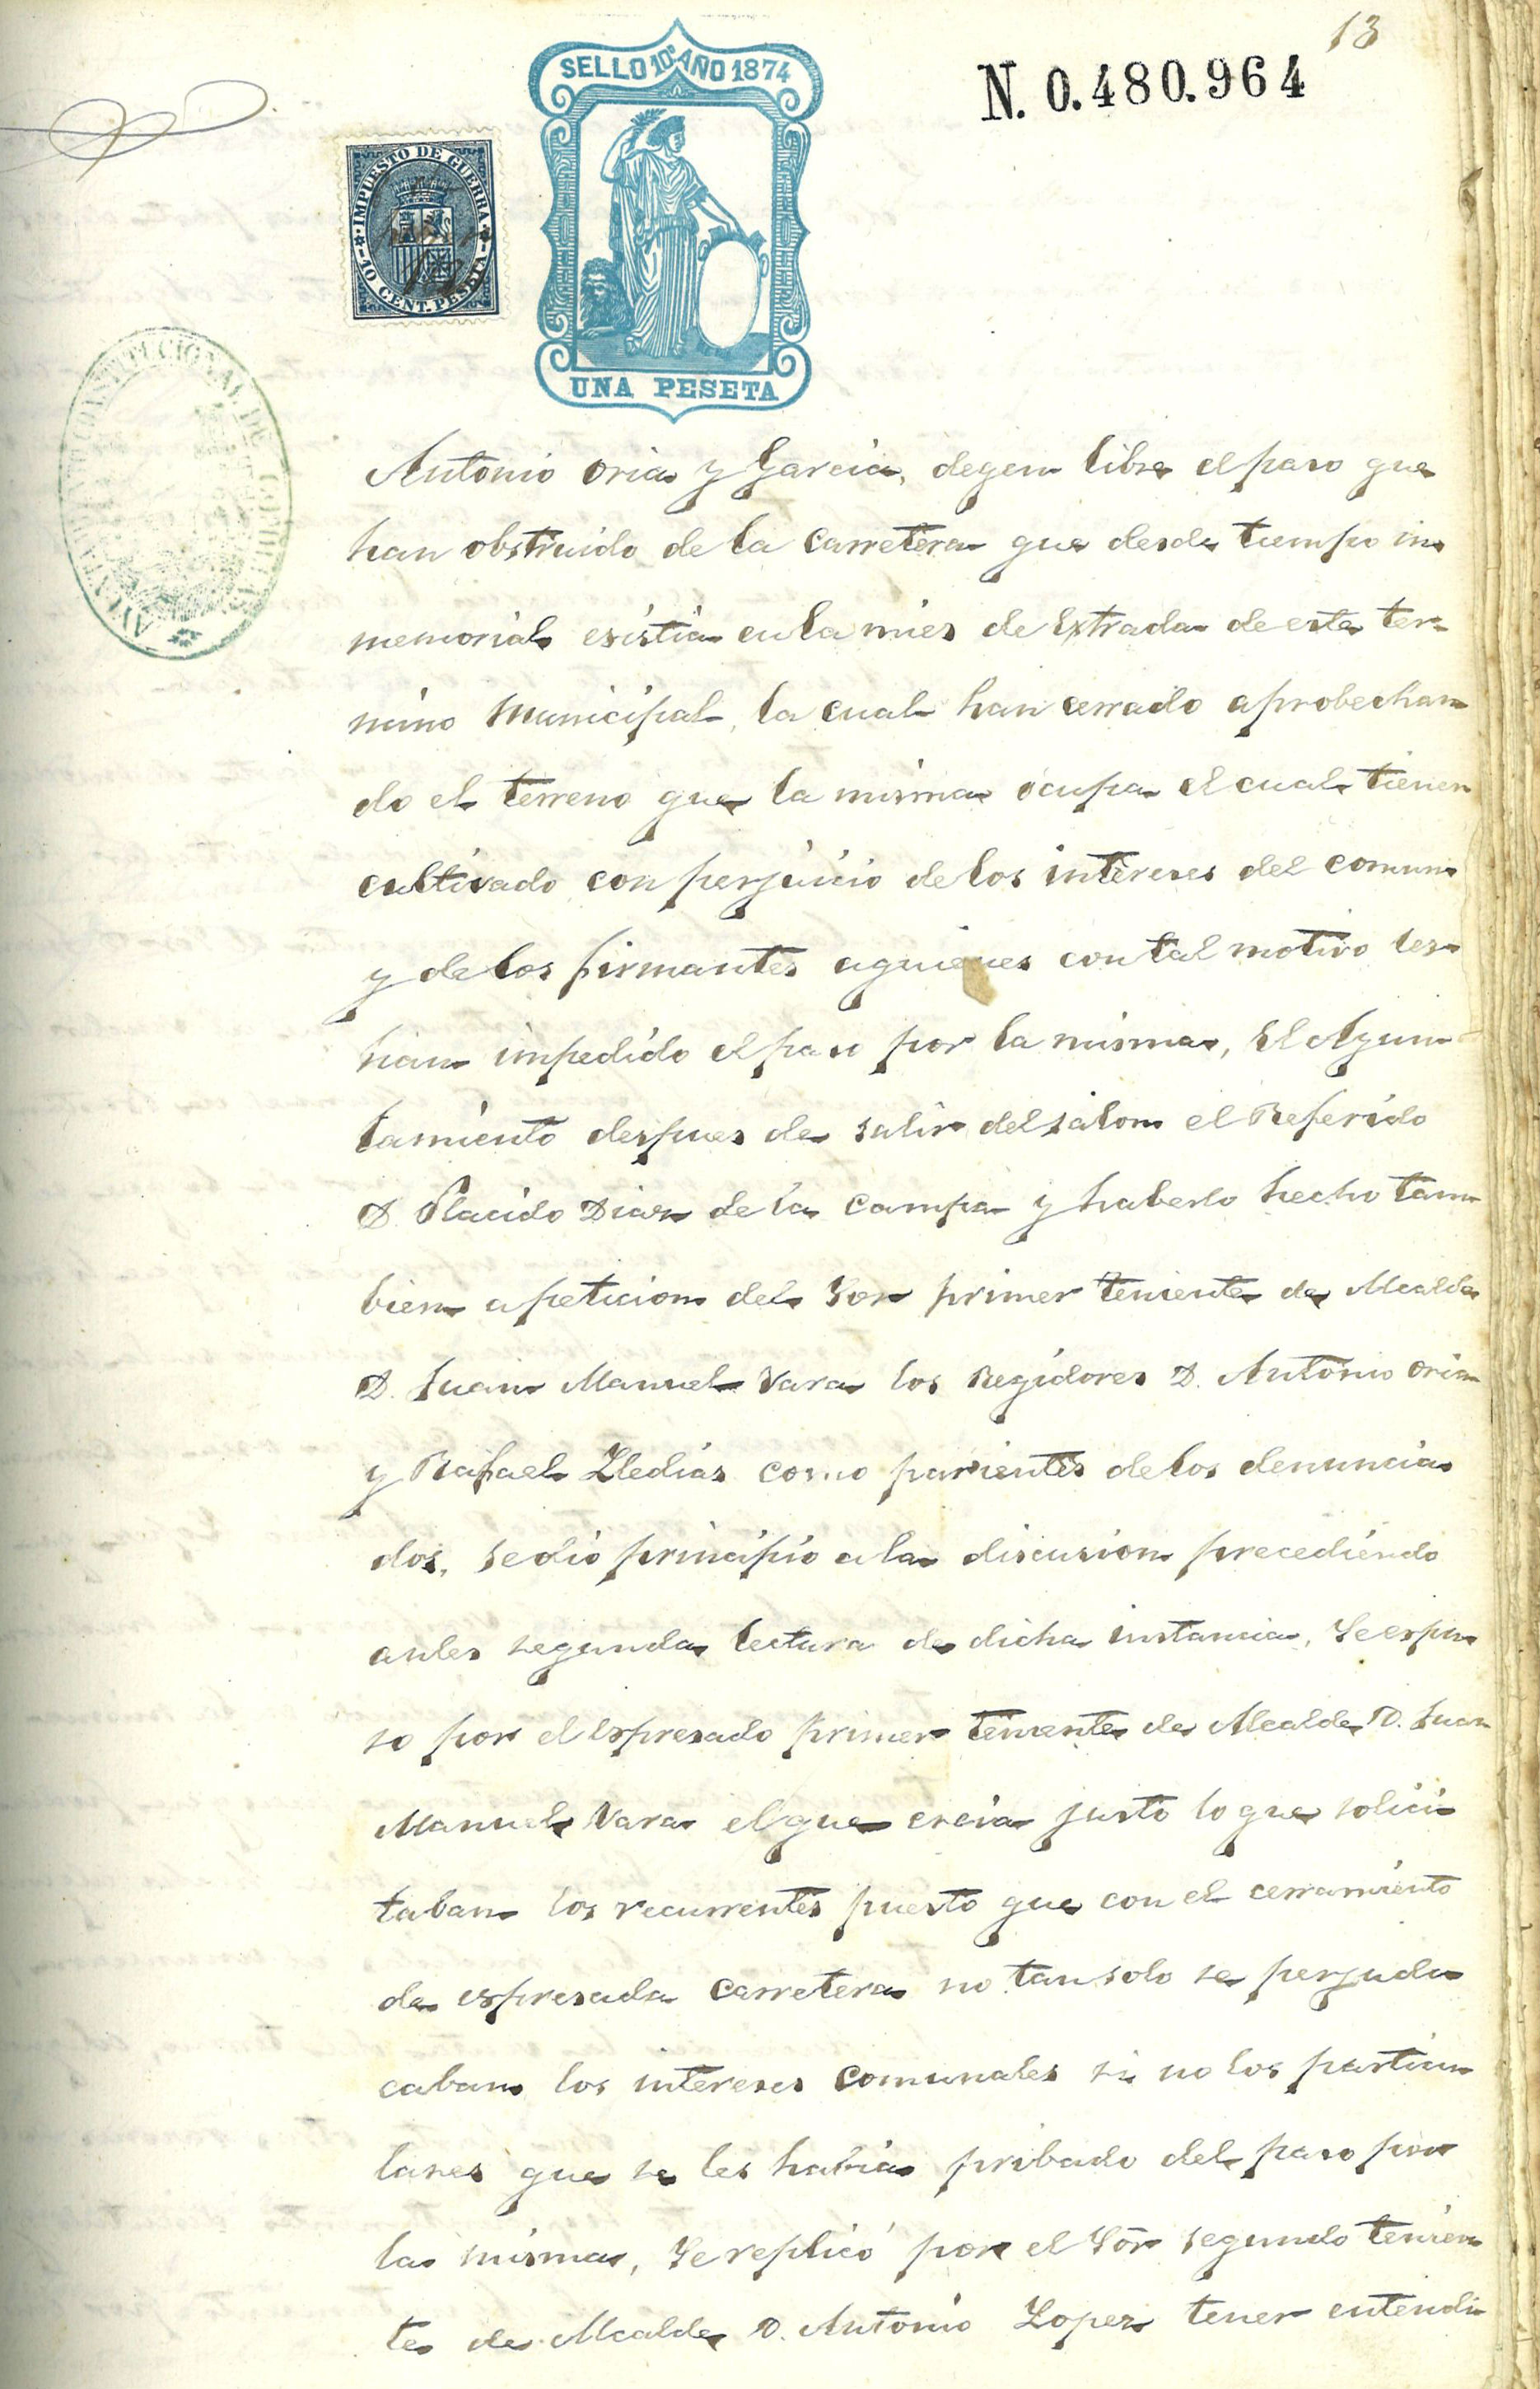 13
SELLO 10º AÑO 1874
N. 0.480.964
IMPUESTO DE GUERRA
10 CENT. PESETA
UNA PESETA
AYUNTAMIENTO CONSTITUCIONAL DE
Antonio Oria y Garcia, degen libre el paso que
han obstruido de la Carretera que desde tiempo in
memorial esistia en la mies de Estrada de este ter-
mino Municipal, la cual han cerrado aprobechan
do el terreno que la misma ocupa el cual tienen
cultivado con perjuicio de los intereses del comun
y de los firmantes aquienes con tal motivo les
han impedido el paso por la misma, El Ayun
tamiento despues de salir del salon el Referido
D. Placido Diaz de la Campa y haberlo hecho tam
bien a peticion del Sor primer teniente de Alcalde
D. Juan Manuel Vara los Regidores D. Antonio Oria
y Rafael Lledias como parientes de los denuncia
dos, se dio principio a la discusion precediendo
antes segunda lectura de dicha instancia, Se espu
so por el Espresado primer teniente de Alcalde D. Juan
Manuel Vara el que creia justo lo que solici
taban los recurrentes puesto que con el cerramiento
de espresada Carretera no tan solo se perjudi
caban los intereses Comunales si no los particu
lares que se les habia pribado del paso por
la misma, Se replicó por el Sor segundo tenien
te de Alcalde D. Antonio Lopez tener entendi